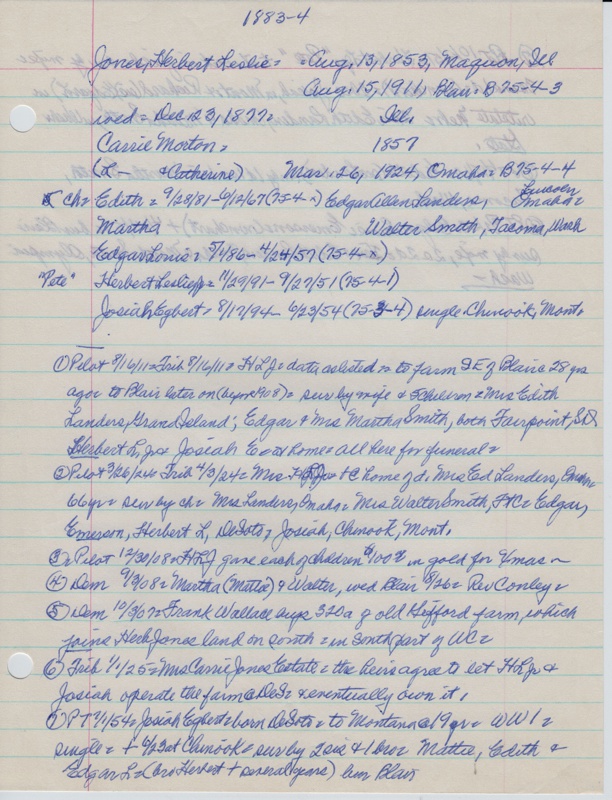 1883-4
Jones, Herbert Leslie = = Aug. 13, 1853, Maquon, Ill
Aug. 15, 1911, Blair = B 75-4-3
wed = Dec 23, 1877 = Ill.
Carrie Morton = 1857
(L - & Catherine) Mar. 26, 1924, Omaha = B75-4-4
ch = Edith = 9/28/81 - 6/12/67 (75-4-) Edgar Allen Landers, Omaha =
Martha Walter Smith, Tacoma, Wash
Edgar Louis = 5/1/86 - 4/24/57 (75-4-)
"Pete" Herbert Leslie Jr = 11/29/91 - 9/27/51 (75-4-1)
Josiah Egbert = 8/17/94 - 6/23/54 (75-3-4) single. Chinook, Mont.
① Pilot 8/16/11 = Trib 8/16/11 = HLJ = data as listed = to farm SE of Blair = 28 yrs
ago = to Blair later on (by 1908) = sur by wife & 5 children = Mrs Edith
Landers, Grand Island; Edgar & Mrs Martha Smith, both Fairpoint, SD
Herbert L, Jr & Josiah E at home = all here for funeral =
② Pilot 3/26/24 = Trib 4/3/24 = Mrs HLJ @ home of d. Mrs Ed Landers, Omaha
66 yr = sur by ch = Mrs Landers, Omaha = Mrs Walter Smith, = Edgar,
Emerson, Herbert L, DeSoto, Josiah, Chinook, Mont.
③ Pilot 12/30/08 = HLJ gave each of children $100 in gold for Xmas ~
④ Dem 9/3/08 = Martha (Mattie) & Walter, wed Blair 8/26 = Rev Conley =
⑤ Dem 10/3/07 = Frank Wallace buys 320a of old Gifford farm, which
joins Herb Jones land on south = in South part of WC =
⑥ Trib 1/1/25 = Mrs Carrie Jones Estate = the heirs agree to let HLJr &
Josiah operate the farm @ DeS = & eventually own it.
⑦ PT 7/1/54 = Josiah Egbert = born DeSoto = to Montana @ 19 yr = WW1 =
single = + Chinook = sur by 2 sis & 1 bro = Mattie, Edith &
Edgar L = (bro Herbert + several years) bur Blair